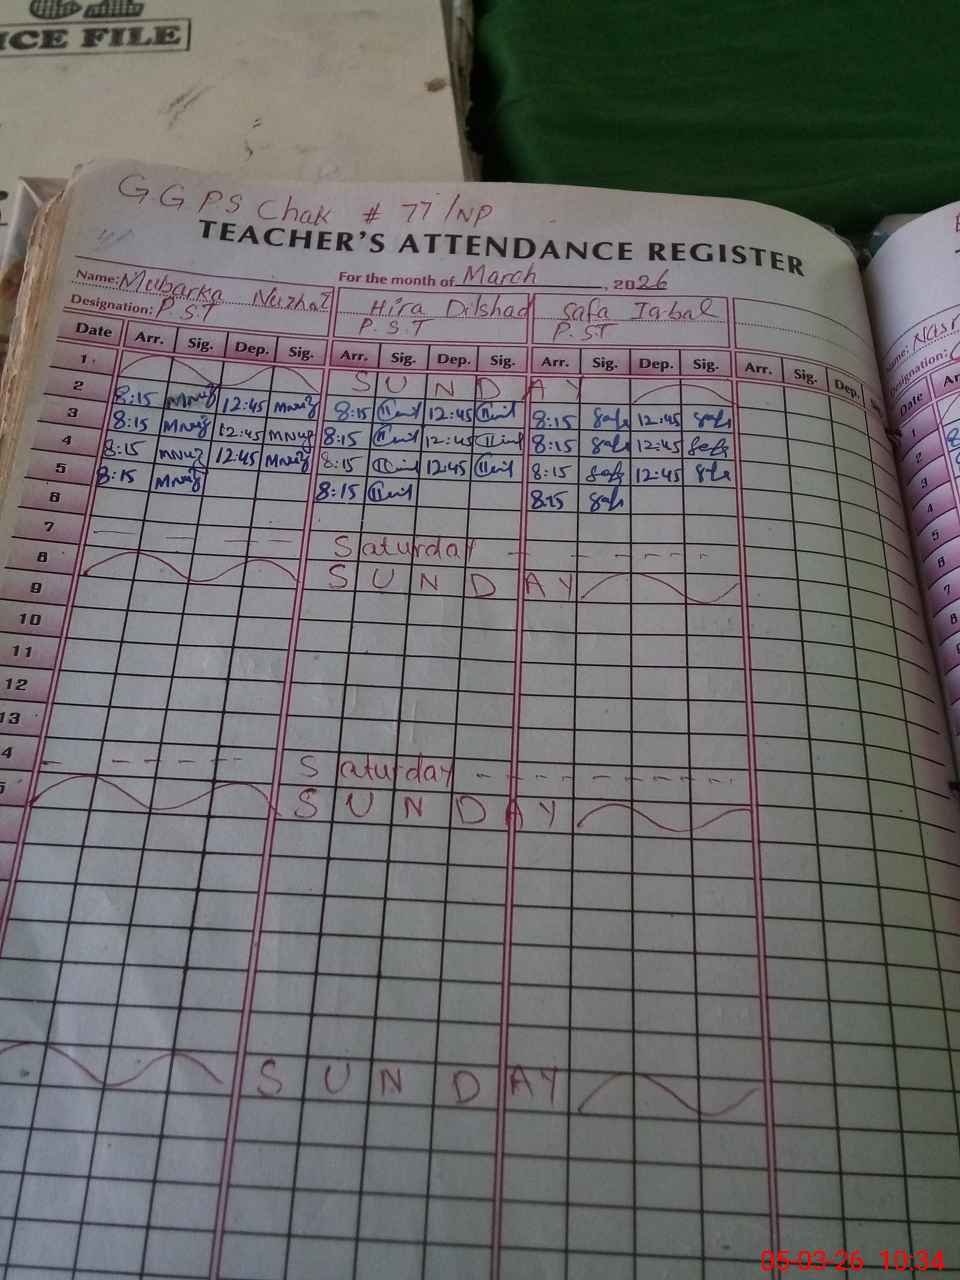 ICE FILE
G.G.P.S Chak # 77/NP
TEACHER'S ATTENDANCE REGISTER
Name: Mubarka Nuzhat For the month of March, 2026
Designation: P.S.T Hira Dilshad Safa Iqbal
P.S.T P.ST
Date Arr. Sig. Dep. Sig. Arr. Sig. Dep. Sig. Arr. Sig. Dep. Sig. Arr. Sig. Dep.
1 SUNDAY
2 8:15 12:45 8:15 12:45 8:15 Safa 12:45 Safa
3 8:15 12:45 8:15 12:45 8:15 Safa 12:45 Safa
4 8:15 12:45 8:15 12:45 8:15 Safa 12:45 Safa
5 8:15 8:15 8:15 Safa
6
7 Saturday
8 SUNDAY
9
10
11
12
13
4 Saturday
5 SUNDAY
SUNDAY
Name:
Designation:
Date
1
2
3
4
5
6
7
8
05-03-26 10:34